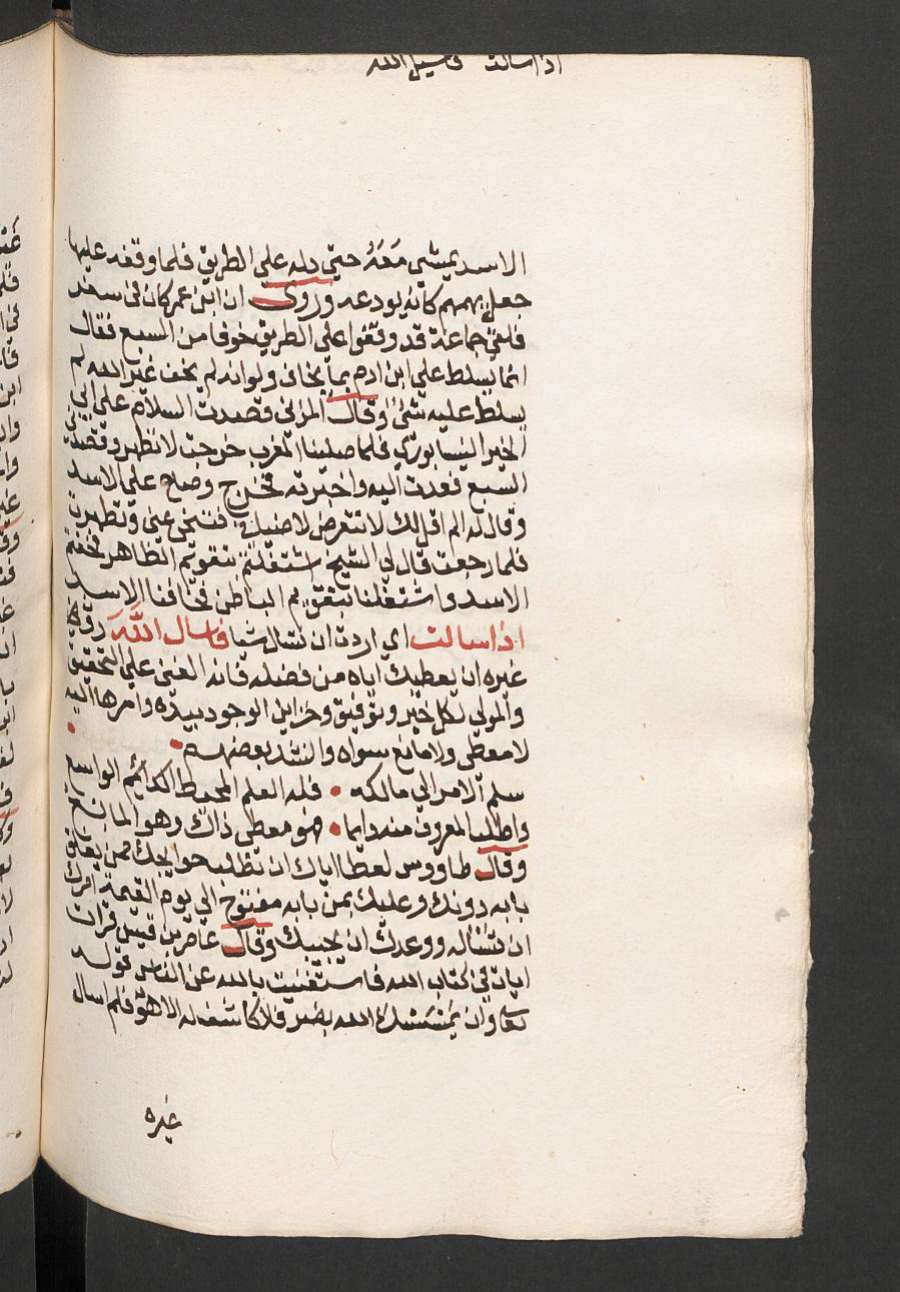 اذا سالت فاسيل الله
الاسد يمشي معَهُ حتي دله علي الطريق فلما وقفه عليها
جعل يهمهم كانه يودعه وروي ان ابن عمر كان في سفر
فلقي جماعة قد وقفوا علي الطريق خوفا من السبع فقال
انما يسلط علي ابن ادم بما يخاف ولو انه لم يخف غير الله لم
يسلط عليه شئ وقال المزني قصدت السلام علي ابي
الخير النيسابوري فلما صلينا المغرب خرجت لاتطهر وقصدني
السبع فعدت اليه واخبرته فخرج وصاح علي الاسد
وقال له الم اقل لك لا تتعرض لاضيافي فتنحي عني وتطهرت
فلما رجعت قال لي الشيخ اشتغلتم بتقويم الظاهر فخفتم
الاسد واشتغلنا بتقويم الباطن فخافنا الاسد
اذا سالت اي اردت ان تسال شيا فاسال الله دون
غيره ان يعطيك اياه من فضله فانه الغني علي التحقيق
والمولي لكل خير وتوفيق وخزاين الوجود بيده وامرها اليه
لا معطي ولا مانع سواه وانشد بعضهم
سلم الامر الي مالكه • فله العلم المحيط الدائم الواسع
واطلب المعروف منه دايما • فهو معطي ذاك وهو المانع
وقال طاووس لعطا اياك ان تطلب حوايجك ممن يغلق
بابه دونك وعليك بمن بابه مفتوح الي يوم القيمة امرك
ان تساله ووعدك ان يجيبك وقال عامر بن قيس قرات
ايات في كتاب الله فاستغنيت بالله عن الناس قوله
تعا وان يمسسك الله بضر فلا كاشف له الا هو فلم اسال
غيره